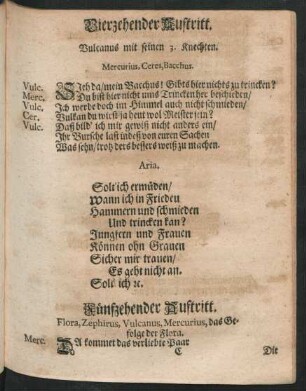 Vierzehender Aufftritt.
Vulcanus mit seinen 3. Knechten.
Mercurius. Ceres, Bacchus.
Vulc. Sieh da/mein Bacchus! Gibts hier nichts zu trincken?
Merc. Du bist hier nicht ums Trincken her beschieden/
Vulc. Ich werde doch im Himmel auch nicht schmieden/
Cer. Vulkan du wirst ja heut wol Meister sein?
Vulc. Daß bild' ich mir gewiß nicht anders ein/
Ihr Bursche last indeß von euren Sachen
Was sehn/ trotz der's bessers weiß zu machen.
Aria.
Solt ich ermüden/
Wann ich in Frieden
Hammern und schmieden
Und trincken kan?
Jungfern und Frauen
Können ohn Grauen
Sicher mir trauen/
Es geht nicht an.
Solt ich ꝛc.
Fünfzehender Aufftritt.
Flora, Zephirus, Vulcanus, Mercurius, das Ge-
folge der Flora.
Merc. DA kommet das verliebte Paar
C Die